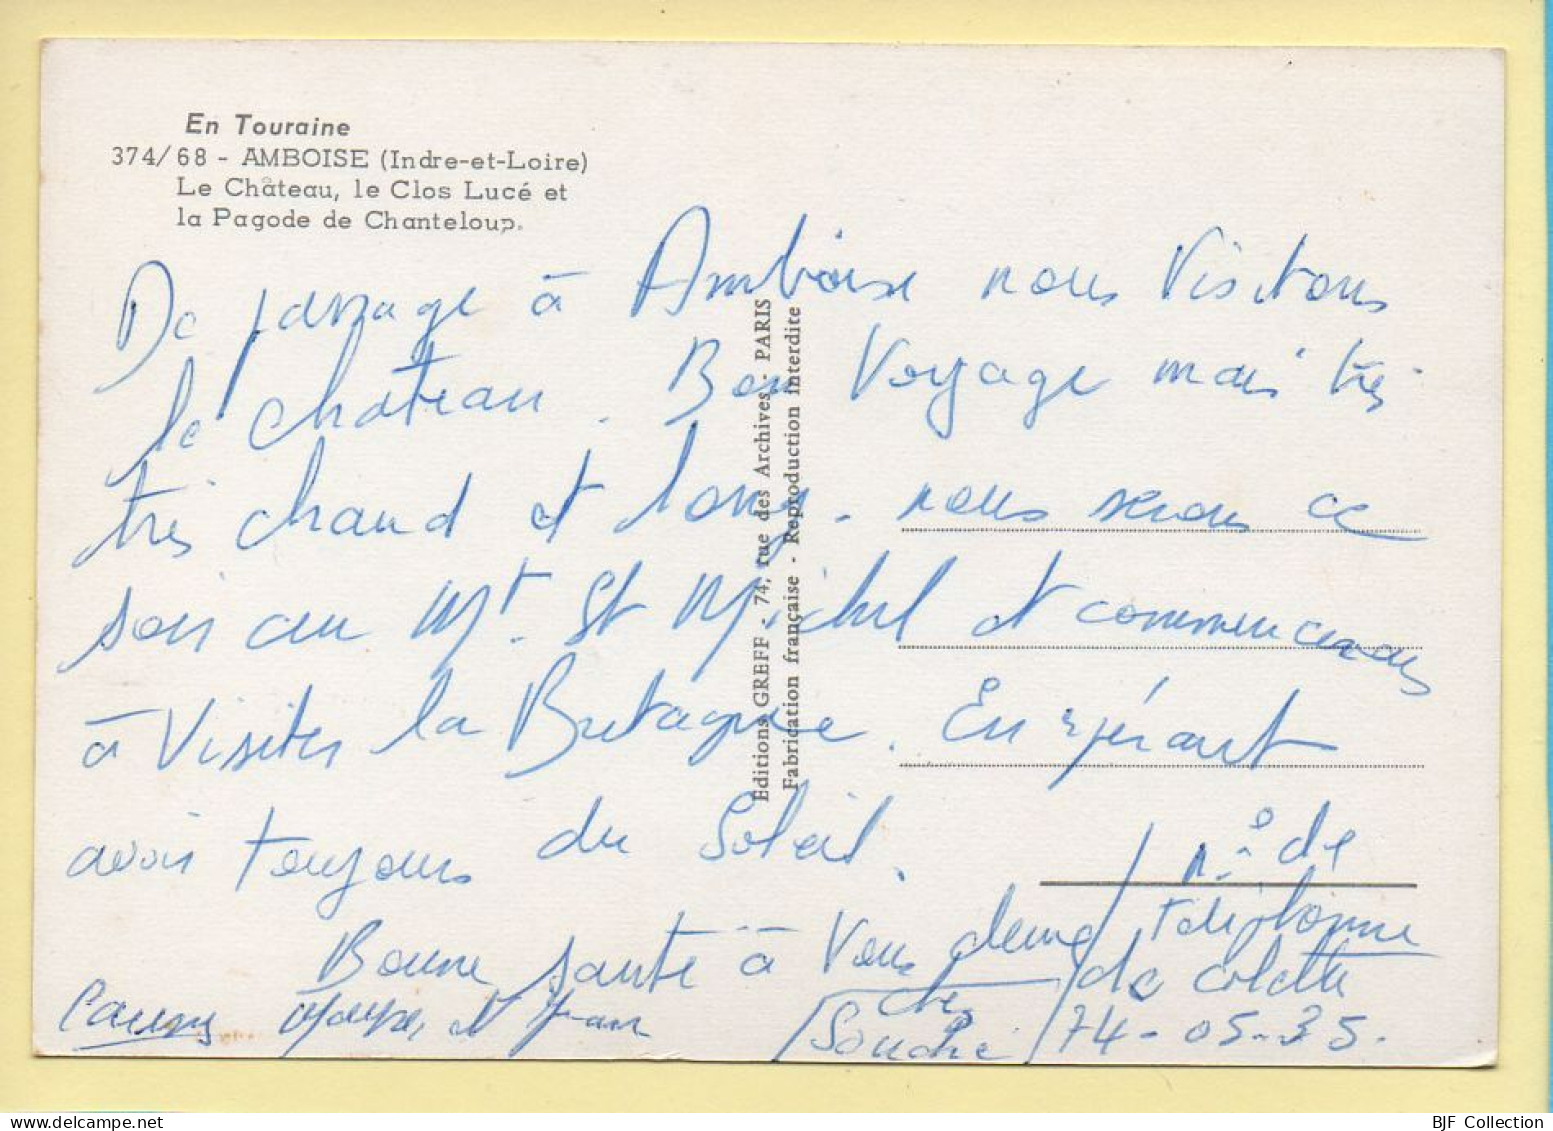 En Touraine
374/68 - AMBOISE (Indre-et-Loire)
Le Château, le Clos Lucé et
la Pagode de Chanteloup.
De passage à Amboise nous visitons
le chateau. Bon Voyage mais très
très chaud et long. nous serons ce
soir au Mt St Michel et commencerons
à visiter la Bretagne. En espérant
avoir toujours du Soleil.
Bonne santé à Vous deux
et Jean
Souché
n° de
téléphone
de Colette
74-05-35.
Editions GREFF - 74, rue des Archives - PARIS
Fabrication française - Reproduction interdite
BJF Collection